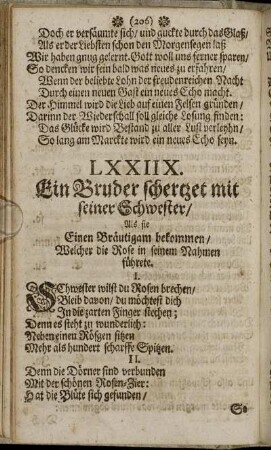 (206)
Doch er versäumte sich/ und guckte durch das Glaß/
Als er der Liebsten schon den Morgensegen laß
Wir haben gnug gelernt. Gott woll uns ferner sparen/
So dencken wir sein bald was neues zu erfahren/
Wenn der beliebte Lohn der freudenreichen Nacht
Durch einen neuen Gast ein neues Echo macht.
Der Himmel wird die Lieb auf einen Felsen gründen/
Darinn der Wiederschall soll gleiche Losung finden:
Das Glücke wird Bestand zu aller Lust verleyhn/
So lang am Marckte wird ein neues Echo seyn.
LXXIIX.
Ein Bruder schertzet mit
seiner Schwester/
Als sie
Einen Bräutigam bekommen/
Welcher die Rose in seinem Nahmen
führete.
I.
SChwester wilst du Rosen brechen/
Bleib davon/ du möchtest dich
In die zarten Finger stechen;
Denn es steht zu wunderlich:
Neben einen Rößgen sitzen
Mehr als hundert scharffe Spitzen.
II.
Denn die Dörner sind verbunden
Mit der schönen Rosen-Zier:
Hat die Blüte sich gefunden/
So